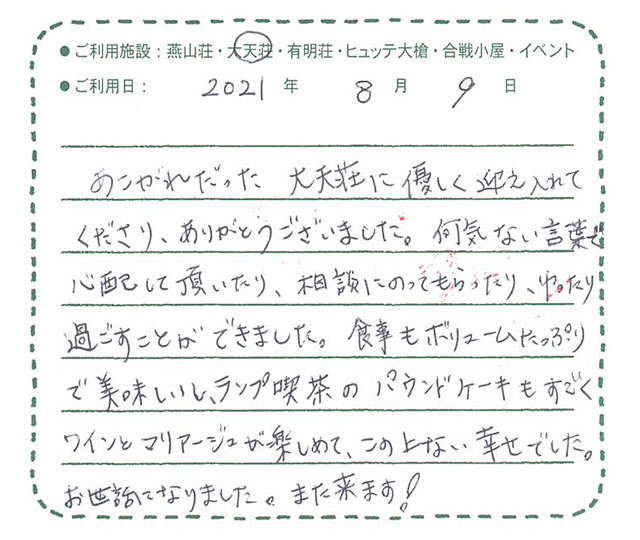 ●ご利用施設：燕山荘・大天荘・有明荘・ヒュッテ大槍・合戦小屋・イベント
●ご利用日： 2021 年 8 月 9 日
あこがれだった 大天荘に優しく迎え入れて
くださり、ありがとうございました。何気ない言葉で
心配して頂いたり、相談にのってもらったり、ゆったり
過ごすことができました。食事もボリュームたっぷり
で美味しいし、ランプ喫茶のパウンドケーキもすごく
ワインとマリアージュが楽しめて、この上ない幸せでした。
お世話になりました。また来ます！